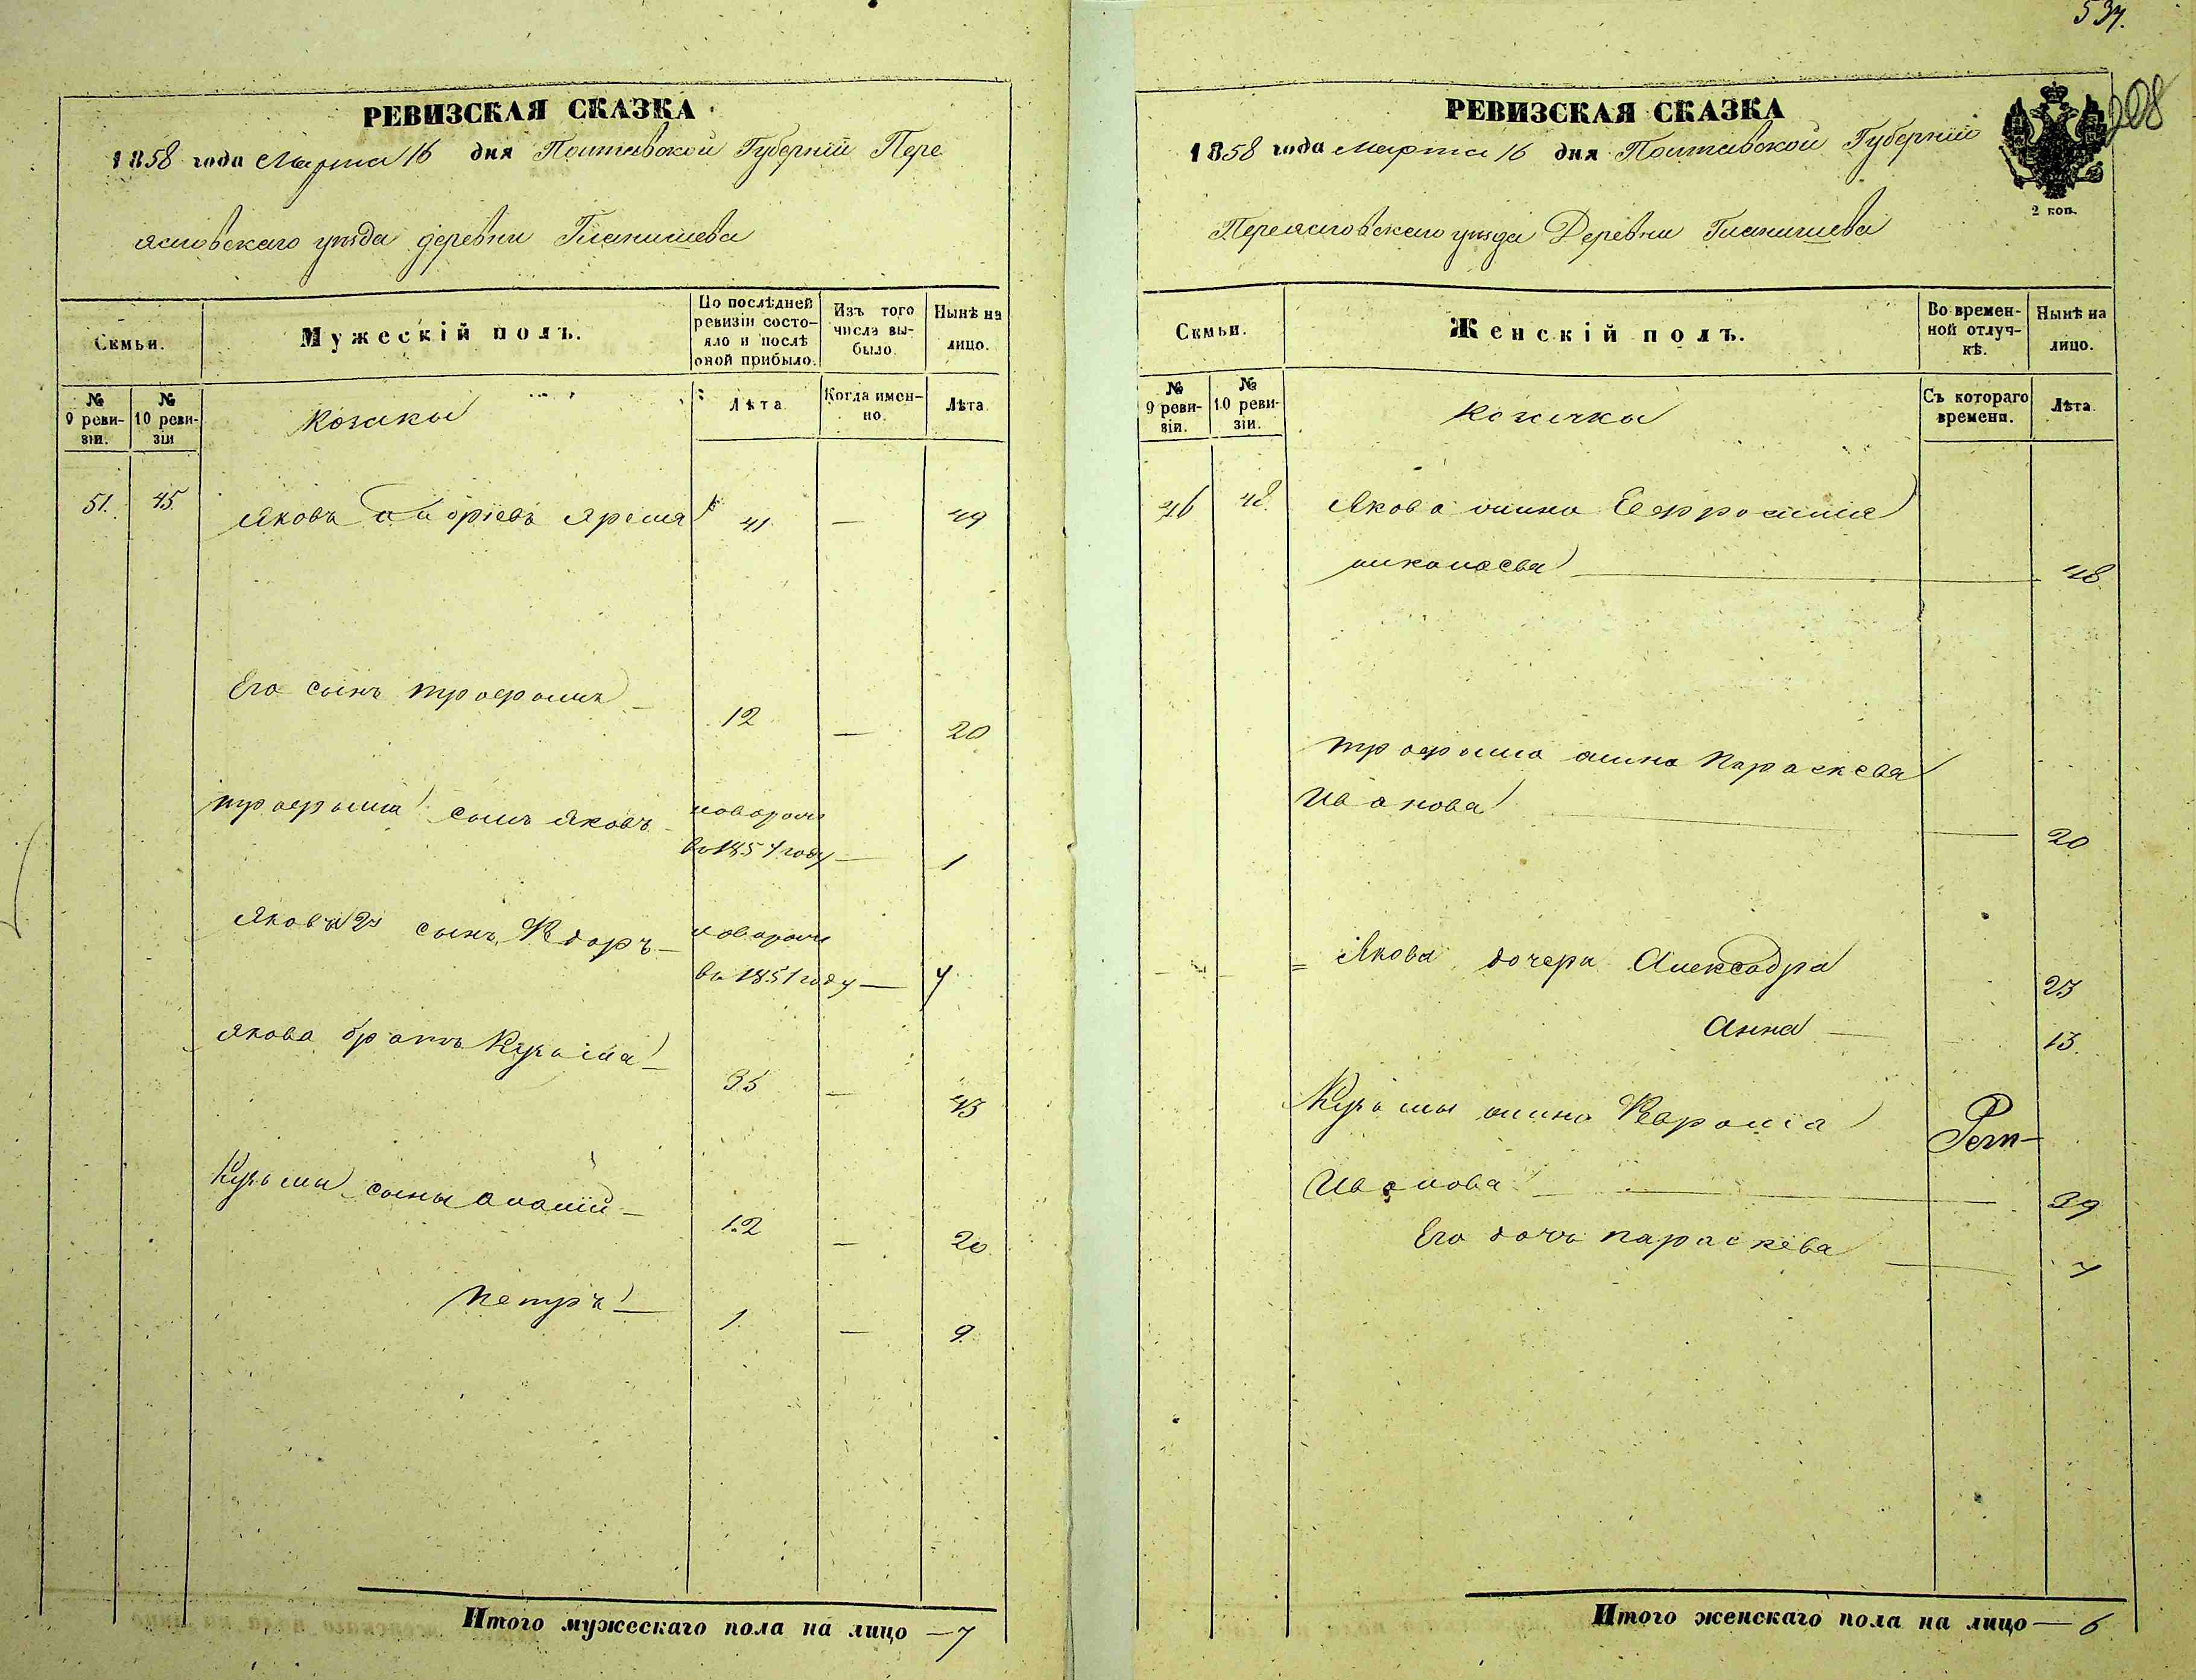 537.
208
РЕВИЗСКАЯ СКАЗКА
1858 года Марта 16 дня Полтавской Губерніи Пере
яславскаго уѣзда деревни Гланишева
Семьи.
Мужескій полъ.
По послѣдней ревизіи состояло и послѣ оной прибыло.
Изъ того числа выбыло.
Нынѣ на лицо.
№ 9 ревизіи.
№ 10 ревизіи
Козаки
Лѣта
Когда именно.
Лѣта
51. 45. Яковъ Ярема 41 — 49
Его сынъ Трофимъ — 12 — 20
Трофима сынъ Яковъ новорож
въ 1857 году — 1
Якова 2й сынъ Федоръ — новорож
въ 1851 году — 7
Якова братъ Кузьма — 35 — 43
Кузьмы сыны — 12 — 20
Петръ — 1 — 9
Итого мужескаго пола на лицо — 7
РЕВИЗСКАЯ СКАЗКА
1858 года Марта 16 дня Полтавской Губерніи
2 коп.
Переяславскаго уѣзда Деревни Гланишева
Семьи.
Женскій полъ.
Во временной отлучкѣ.
Нынѣ на лицо.
№ 9 ревизіи.
№ 10 ревизіи.
Козачки
Съ котораго времени.
Лѣта
46 48 Якова жина Ефросинія
николаева — 48
Трофима жина Параскева
Иванова — 20
= Якова дочери Александра 23
Анна — 13.
Кузьмы жина
Иванова — 39
Его дочь параскева — 7
Итого женскаго пола на лицо — 6